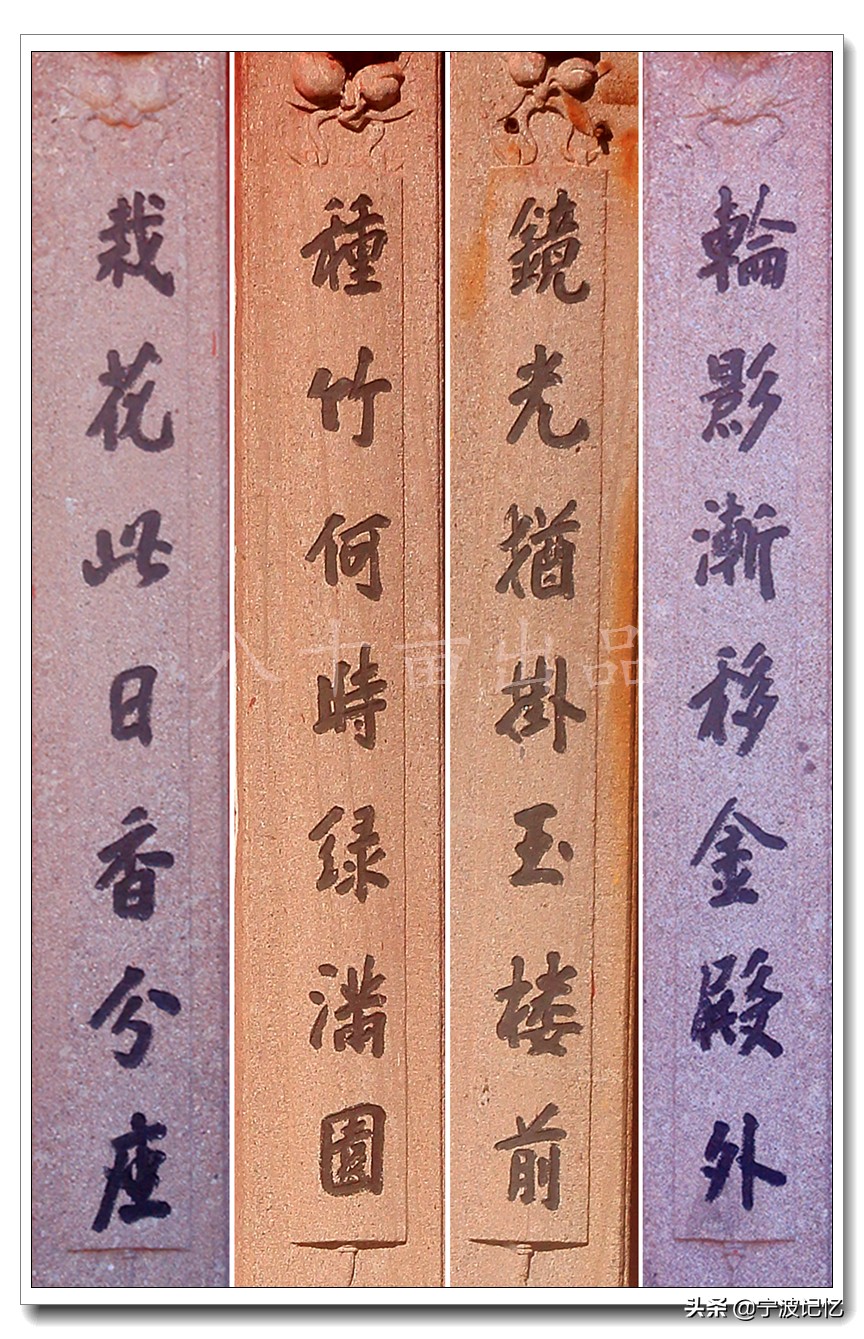 輪影漸移金殿外
鏡光猶掛玉楼前
種竹何時绿满園
栽花此日香分座
八十亩出品
头条 @宁波记忆